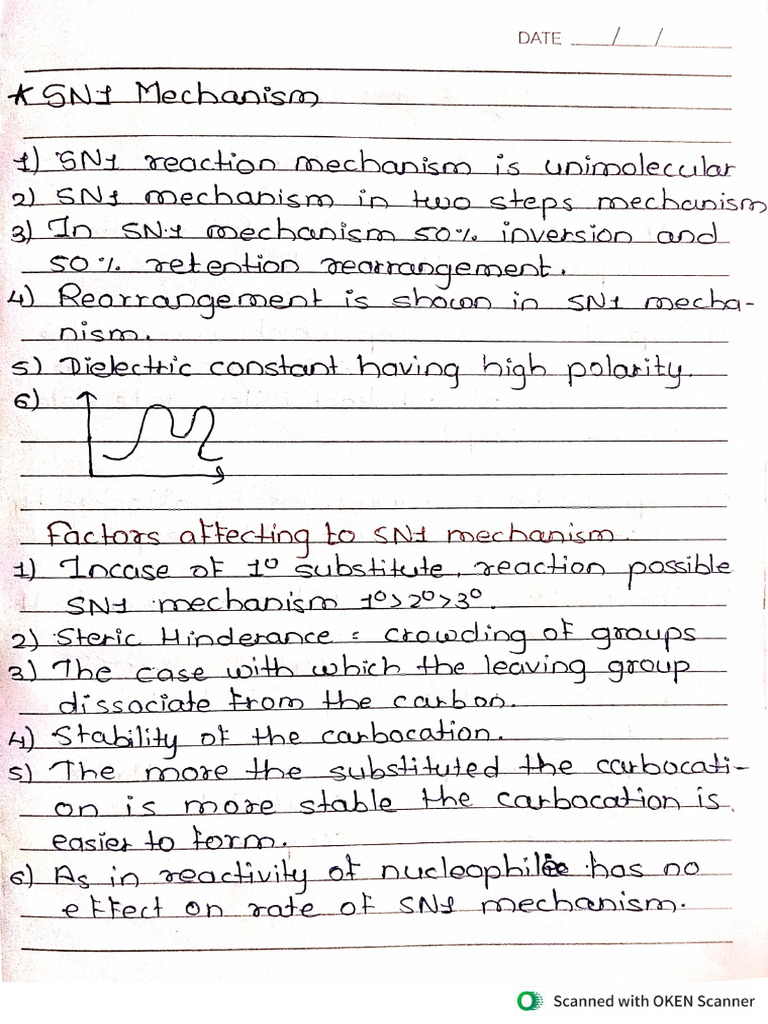 DATE / /
* SN1 Mechanism
1) SN1 reaction mechanism is unimolecular
2) SN1 mechanism in two steps mechanism
3) In SN1 mechanism 50% inversion and
50% retention rearrangement.
4) Rearrangement is shown in SN1 mecha-
nism.
5) Dielectric constant having high polarity.
6)
Factors affecting to SN1 mechanism.
1) Incase of 1° substitute, reaction possible
SN1 mechanism 1°>2°>3°.
2) Steric Hinderance = crowding of groups
3) The case with which the leaving group
dissociate from the carbon.
4) Stability of the carbocation.
5) The more the substituted the carbocati-
on is more stable the carbocation is
easier to form.
6) As in reactivity of nucleophile has no
effect on rate of SN1 mechanism.
Scanned with OKEN Scanner